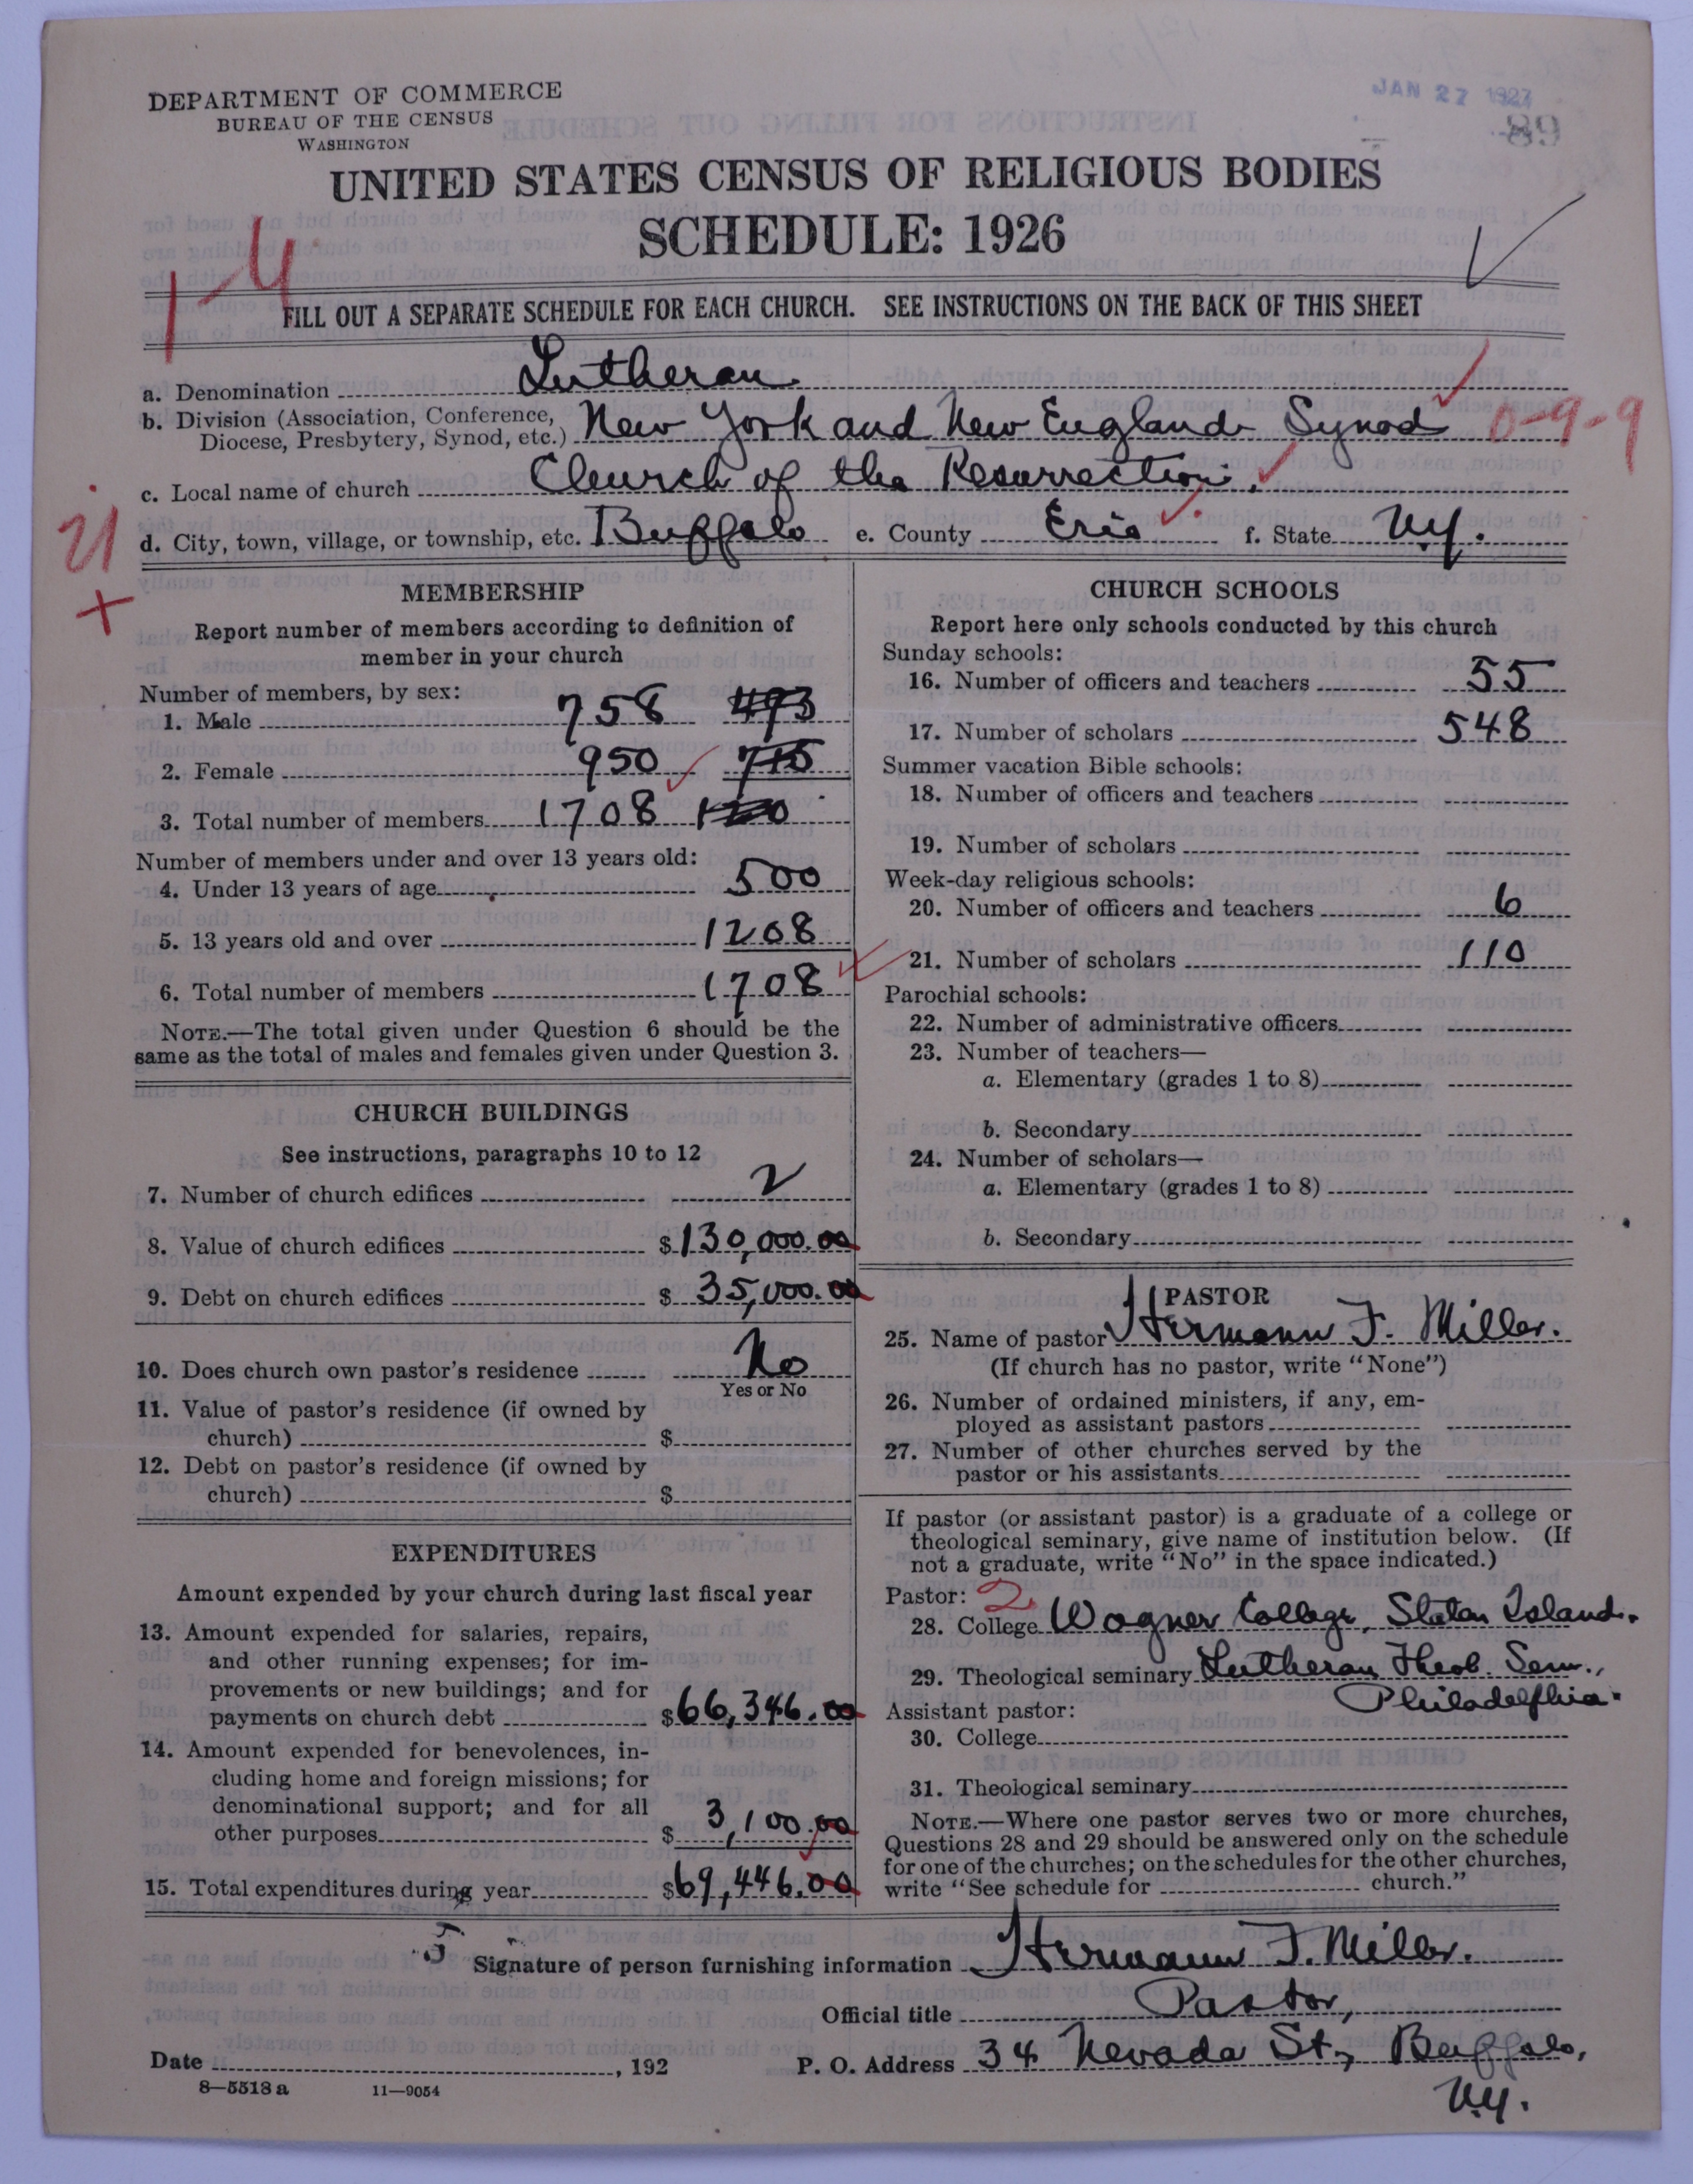 JAN 27 1927
89
DEPARTMENT OF COMMERCE
BUREAU OF THE CENSUS
WASHINGTON
UNITED STATES CENSUS OF RELIGIOUS BODIES
SCHEDULE: 1926
1-4
FILL OUT A SEPARATE SCHEDULE FOR EACH CHURCH. SEE INSTRUCTIONS ON THE BACK OF THIS SHEET
a. Denomination Lutheran
b. Division (Association, Conference,
Diocese, Presbytery, Synod, etc.) New York and New England Synod 0-9-9
c. Local name of church Church of the Resurrection.
d. City, town, village, or township, etc. Buffalo e. County Erie f. State N.Y.
MEMBERSHIP
Report number of members according to definition of
member in your church
Number of members, by sex:
1. Male 758 493
2. Female 950 715
3. Total number of members 1708
Number of members under and over 13 years old:
4. Under 13 years of age 500
5. 13 years old and over 1208
6. Total number of members 1708
NOTE.—The total given under Question 6 should be the
same as the total of males and females given under Question 3.
CHURCH BUILDINGS
See instructions, paragraphs 10 to 12
7. Number of church edifices 2
8. Value of church edifices $130,000.00
9. Debt on church edifices $ 35,000.00
10. Does church own pastor's residence No
Yes or No
11. Value of pastor's residence (if owned by
church) $
12. Debt on pastor's residence (if owned by
church) $
EXPENDITURES
Amount expended by your church during last fiscal year
13. Amount expended for salaries, repairs,
and other running expenses; for im-
provements or new buildings; and for
payments on church debt $66,346.00
14. Amount expended for benevolences, in-
cluding home and foreign missions; for
denominational support; and for all
other purposes $ 3,100.00
15. Total expenditures during year $69,446.00
CHURCH SCHOOLS
Report here only schools conducted by this church
Sunday schools:
16. Number of officers and teachers 55
17. Number of scholars 548
Summer vacation Bible schools:
18. Number of officers and teachers
19. Number of scholars
Week-day religious schools:
20. Number of officers and teachers 6
21. Number of scholars 110
Parochial schools:
22. Number of administrative officers
23. Number of teachers—
a. Elementary (grades 1 to 8)
b. Secondary
24. Number of scholars—
a. Elementary (grades 1 to 8)
b. Secondary
PASTOR
25. Name of pastor Hermann F. Miller.
(If church has no pastor, write "None")
26. Number of ordained ministers, if any, em-
ployed as assistant pastors
27. Number of other churches served by the
pastor or his assistants
If pastor (or assistant pastor) is a graduate of a college or
theological seminary, give name of institution below. (If
not a graduate, write "No" in the space indicated.)
Pastor: 2
28. College Wagner College, Staten Island.
29. Theological seminary Lutheran Theol. Sem.,
Philadelphia.
Assistant pastor:
30. College
31. Theological seminary
NOTE.—Where one pastor serves two or more churches,
Questions 28 and 29 should be answered only on the schedule
for one of the churches; on the schedules for the other churches,
write "See schedule for church."
Signature of person furnishing information Hermann F. Miller.
Official title Pastor,
Date , 192
P. O. Address 34 Nevada St., Buffalo,
N.Y.
8—5513 a 11—9054